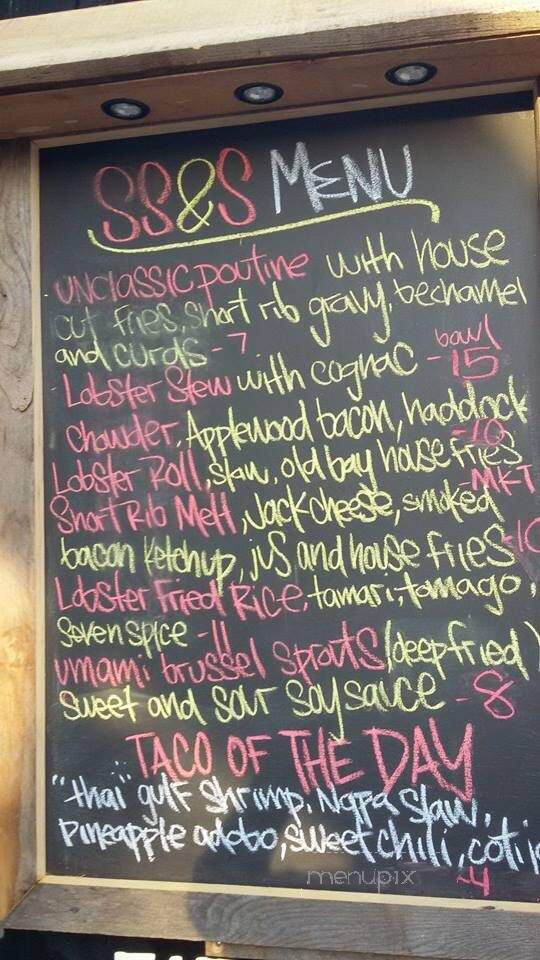 SS&S MENU
UNCLASSIC poutine with house
cut fries, short rib gravy, bechamel
and curds - 7
bowl
Lobster Stew with cognac - 15
Chowder, Applewood bacon, haddock
- 10
Lobster Roll, slaw, old bay house fries
- MKT
Short Rib Melt, Jack cheese, smoked
bacon ketchup, jus and house fries - 10
Lobster Fried Rice, tamari, tamago,
Seven Spice - 11
umami brussel sprouts (deep fried)
sweet and sour soy sauce - 8
TACO OF THE DAY
"thai" gulf shrimp, Napa slaw,
pineapple adobo, sweet chili, cotij
- 4
menupix